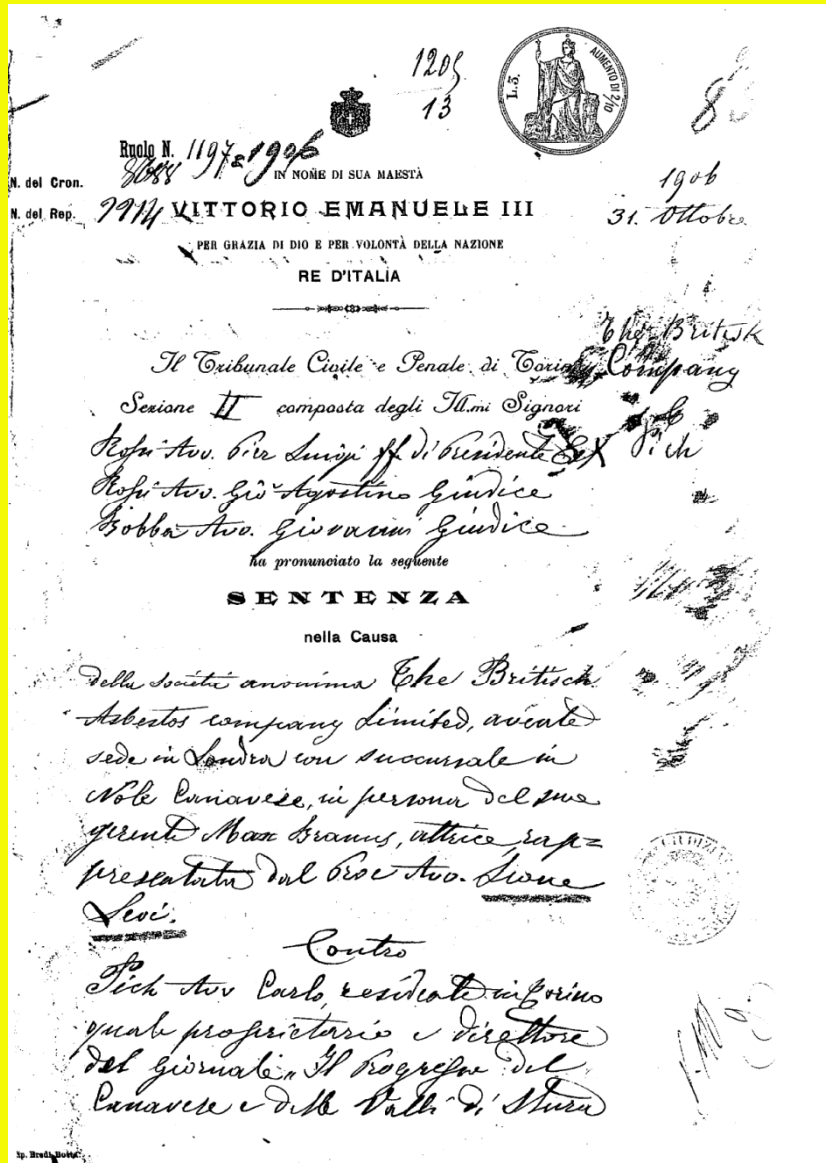 1205
13
L. 5.
AUMENTO DI 2/10
Ruolo N. 1197 1906
N. del Cron.
IN NOME DI SUA MAESTÀ
1906
N. del Rep.
VITTORIO EMANUELE III
31. Ottobre
PER GRAZIA DI DIO E PER VOLONTÀ DELLA NAZIONE
RE D'ITALIA
The Britisk
Il Tribunale Civile e Penale di Torino
Company
Sezione II composta degli Ill.mi Signori
Rossi Avv. Pier Luigi ff. di Presidente
Pich
Rossi Avv. Gio Agostino Giudice
Bobba Avv. Giovanni Giudice
ha pronunciato la seguente
SENTENZA
nella Causa
della società anonima The Britisch
Asbestos company Limited, avente
sede in Londra con succursale in
Nole Canavese, in persona del suo
gerente Max, attrice, rap=
presentata dal Proc Avv. Sione
Levi.
Contro
Pich Avv Carlo, residente in Torino
quale proprietario e direttore
del giornale „Il Progresso del
Canavese e delle Valli di Stura